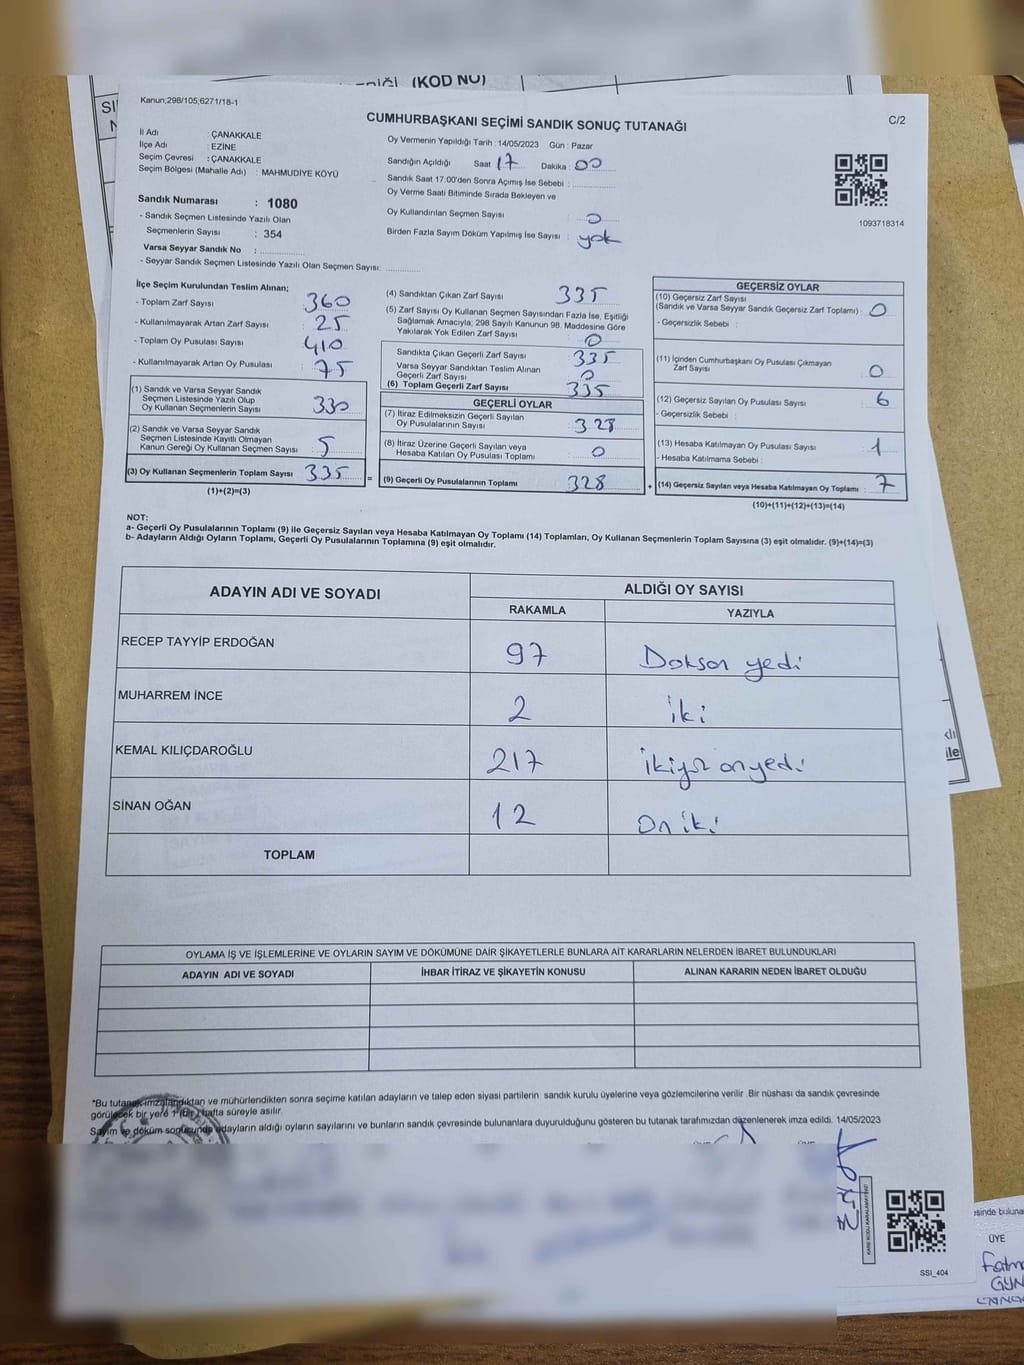 (KOD NO)
Kanun;298/105;6271/18-1
CUMHURBAŞKANI SEÇİMİ SANDIK SONUÇ TUTANAĞI
C/2
İl Adı : ÇANAKKALE
İlçe Adı : EZİNE
Seçim Çevresi : ÇANAKKALE
Seçim Bölgesi (Mahalle Adı) : MAHMUDİYE KÖYÜ
Sandık Numarası : 1080
- Sandık Seçmen Listesinde Yazılı Olan
Seçmenlerin Sayısı : 354
Varsa Seyyar Sandık No : ............
- Seyyar Sandık Seçmen Listesinde Yazılı Olan Seçmen Sayısı: ............
Oy Vermenin Yapıldığı Tarih : 14/05/2023 Gün : Pazar
Sandığın Açıldığı Saat 17 Dakika : 00
Sandık Saat 17:00'den Sonra Açımış İse Sebebi : ............
Oy Verme Saati Bitiminde Sırada Bekleyen ve
Oy Kullandırılan Seçmen Sayısı : 0
Birden Fazla Sayım Döküm Yapılmış İse Sayısı : yok
1093718314
İlçe Seçim Kurulundan Teslim Alınan;
- Toplam Zarf Sayısı 360
- Kullanılmayarak Artan Zarf Sayısı : 25
- Toplam Oy Pusulası Sayısı : 410
- Kullanılmayarak Artan Oy Pusulası : 75
(1) Sandık ve Varsa Seyyar Sandık
Seçmen Listesinde Yazılı Olup
Oy Kullanan Seçmenlerin Sayısı : 330
(2) Sandık ve Varsa Seyyar Sandık
Seçmen Listesinde Kayıtlı Olmayan
Kanun Gereği Oy Kullanan Seçmen Sayısı : 5
(3) Oy Kullanan Seçmenlerin Toplam Sayısı : 335
(1)+(2)=(3)
(4) Sandıktan Çıkan Zarf Sayısı : 335
(5) Zarf Sayısı Oy Kullanan Seçmen Sayısından Fazla İse, Eşitliği
Sağlamak Amacıyla; 298 Sayılı Kanunun 98. Maddesine Göre
Yakılarak Yok Edilen Zarf Sayısı : 0
Sandıkta Çıkan Geçerli Zarf Sayısı : 335
Varsa Seyyar Sandıktan Teslim Alınan
Geçerli Zarf Sayısı : 0
(6) Toplam Geçerli Zarf Sayısı : 335
GEÇERLİ OYLAR
(7) İtiraz Edilmeksizin Geçerli Sayılan
Oy Pusulalarının Sayısı : 328
(8) İtiraz Üzerine Geçerli Sayılan veya
Hesaba Katılan Oy Pusulası Toplamı : 0
= (9) Geçerli Oy Pusulalarının Toplamı : 328
GEÇERSİZ OYLAR
(10) Geçersiz Zarf Sayısı
(Sandık ve Varsa Seyyar Sandık Geçersiz Zarf Toplamı) : 0
- Geçersizlik Sebebi :
(11) İçinden Cumhurbaşkanı Oy Pusulası Çıkmayan
Zarf Sayısı : 0
(12) Geçersiz Sayılan Oy Pusulası Sayısı : 6
- Geçersizlik Sebebi :
(13) Hesaba Katılmayan Oy Pusulası Sayısı : 1
- Hesaba Katılmama Sebebi :
+ (14) Geçersiz Sayılan veya Hesaba Katılmayan Oy Toplamı : 7
(10)+(11)+(12)+(13)=(14)
NOT:
a- Geçerli Oy Pusulalarının Toplamı (9) ile Geçersiz Sayılan veya Hesaba Katılmayan Oy Toplamı (14) Toplamları, Oy Kullanan Seçmenlerin Toplam Sayısına (3) eşit olmalıdır. (9)+(14)=(3)
b- Adayların Aldığı Oyların Toplamı, Geçerli Oy Pusulalarının Toplamına (9) eşit olmalıdır.
ADAYIN ADI VE SOYADI ALDIĞI OY SAYISI
RAKAMLA YAZIYLA
RECEP TAYYİP ERDOĞAN 97 Doksan yedi
MUHARREM İNCE 2 iki
KEMAL KILIÇDAROĞLU 217 ikiyüz onyedi
SİNAN OĞAN 12 On iki
TOPLAM
OYLAMA İŞ VE İŞLEMLERİNE VE OYLARIN SAYIM VE DÖKÜMÜNE DAİR ŞİKAYETLERLE BUNLARA AİT KARARLARIN NELERDEN İBARET BULUNDUKLARI
ADAYIN ADI VE SOYADI İHBAR İTİRAZ VE ŞİKAYETİN KONUSU ALINAN KARARIN NEDEN İBARET OLDUĞU
*Bu tutanak imzalandıktan ve mühürlendikten sonra seçime katılan adayların ve talep eden siyasi partilerin sandık kurulu üyelerine veya gözlemcilerine verilir. Bir nüshası da sandık çevresinde
görülecek bir yere 1 (Bir) hafta süreyle asılır.
Sayım ve döküm sonucunda adayların aldığı oyların sayılarını ve bunların sandık çevresinde bulunanlara duyurulduğunu gösteren bu tutanak tarafımızdan düzenlenerek imza edildi. 14/05/2023
KARE KODU KARALAMAYINIZ!
SSI_404
ÜYE